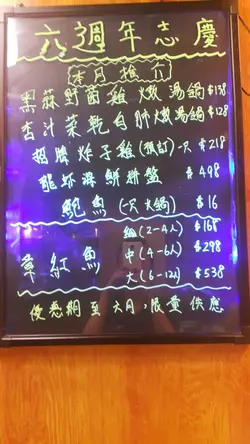 六週年志慶
本月推介
黑蒜野菌雞燉湯鍋 $138
杏汁菜乾白肺燉湯鍋 $128
招牌炸子雞(預訂)一只 $218
龍蝦海鮮拼盤 $498
鮑魚(一只火鍋) $16
細(2-4人) $168
章紅魚 中(4-6人) $298
大(6-12人) $538
優惠期至六月,限量供應